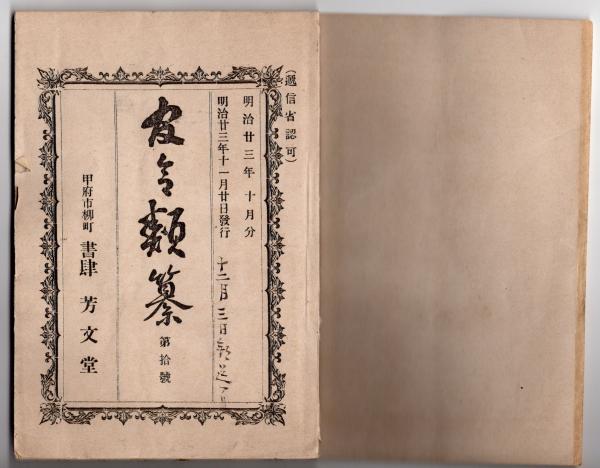 (遞信省認可)
明治廿三年十月分
明治廿三年十一月廿日發行
十二月三日
官令類纂
第拾號
甲府市柳町 書肆 芳文堂